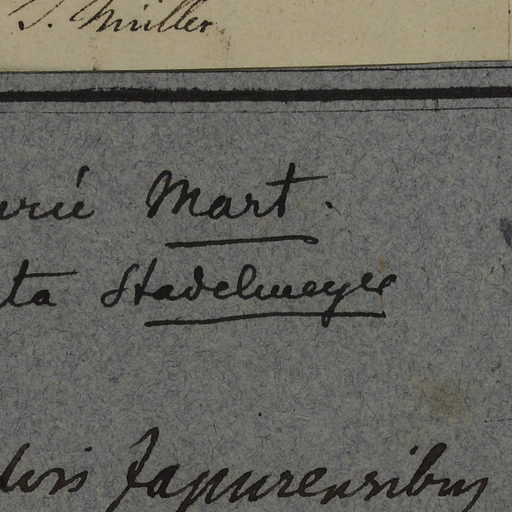 J. Müller
Mart.
ta Stadelmeyer
Japurensibus